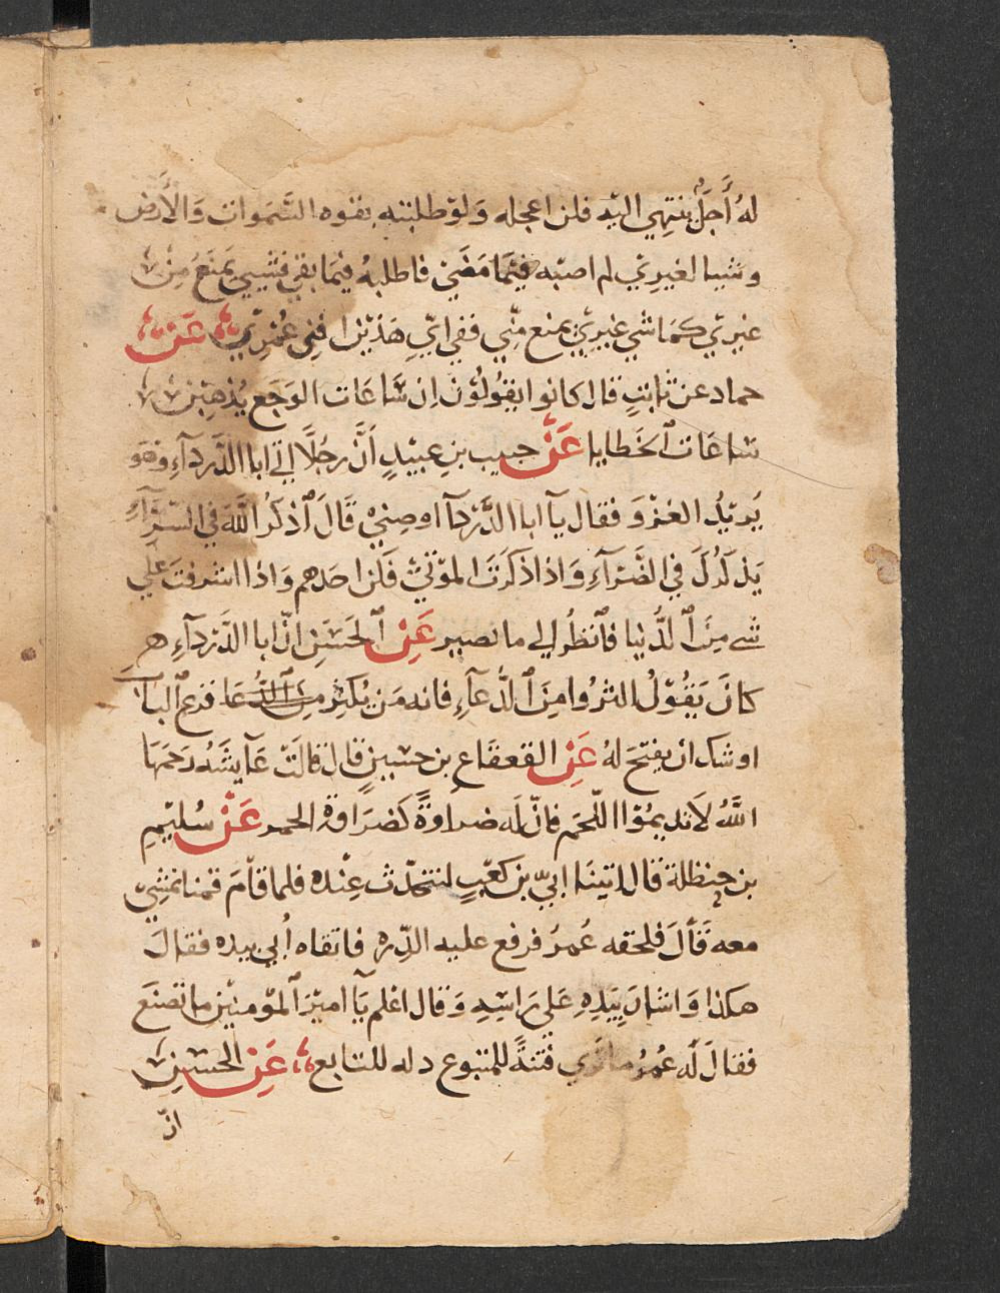 لهُ أَجَلٌ ينتهي اليْه فلن اعجله وَلوْ طلبته بقوه السَّموات وَالأَرض
وشيا لغيرِي لم اصبْه فيمَا مَضَىٰ فاطلبهُ فيمَا بقى فشيي يَمنَعُ مِنْ
غيرِي كمَا شي غيرِيْ يمنع مِنّي ففي ايّ هَذيْن افني عُمْرِي عَنْ
حماد عن ثابتٍ قال كانوا يقُولُوْنَ ان سَّاعَات الوَجَع يُذهِبْنَ
سَاعَات الخَطايا عَنْ حبيب بنِ عبيْدٍ اَنَّ رجُلًا اتي ابا الدَّرداَءِ وهوَ
يَريْدُ الغزْوَ فقال يآ ابا الدَّرْدآ اوصِنيْ قَالَ اذكُرِ اللَّهَ في السرَّآءِ
يَذكُرْكَ في الضَّرآءِ وَاذا ذكَرْتَ الموْتيْ فَكن احَدهم وَاذا اشرفتَ علي
شي مِنَ الدُّنيا فاَنظُر الي ما تصير عَنِ الحَسَنِ انّ ابا الدَّرْدآءِ هر
كانَ يَقُوْلُ اكثرُوا مِنَ الدُّعآءِ فانه مَن يُكثِر قرع البابَ
اوشك ان يفتحَ لهُ عَنِ القعقَاعِ بن حسَيْنٍ قال قالَتْ عَآيشَه رَحمَهَا
اللَّهُ لَا تديمُوْا اللّحَم فانّ لَه ضراوةً كَضرَاوة الخمر عَنْ سُليْمِ
بن حنظلة قال اتينَا ابيّ بن كعْبٍ لنتحدّث عِنْده فلما قامَ قمنا نمْشِيْ
معه قَالَ فلحقه عُمرُ فرفع عليه الدِّره فاتقاه اُبي بيده فقالَ
هكذا وَاشارَ بيَدِهِ عَلي رَاسِهِ وَقال اعْلم يَآ اميْرَ المْومنيْن ما تصْنَع
فقالَ لَه عُمرُ ما تري فتنةً للمتبوع ذله للتابع عَنِ الحسَنِ
انّ